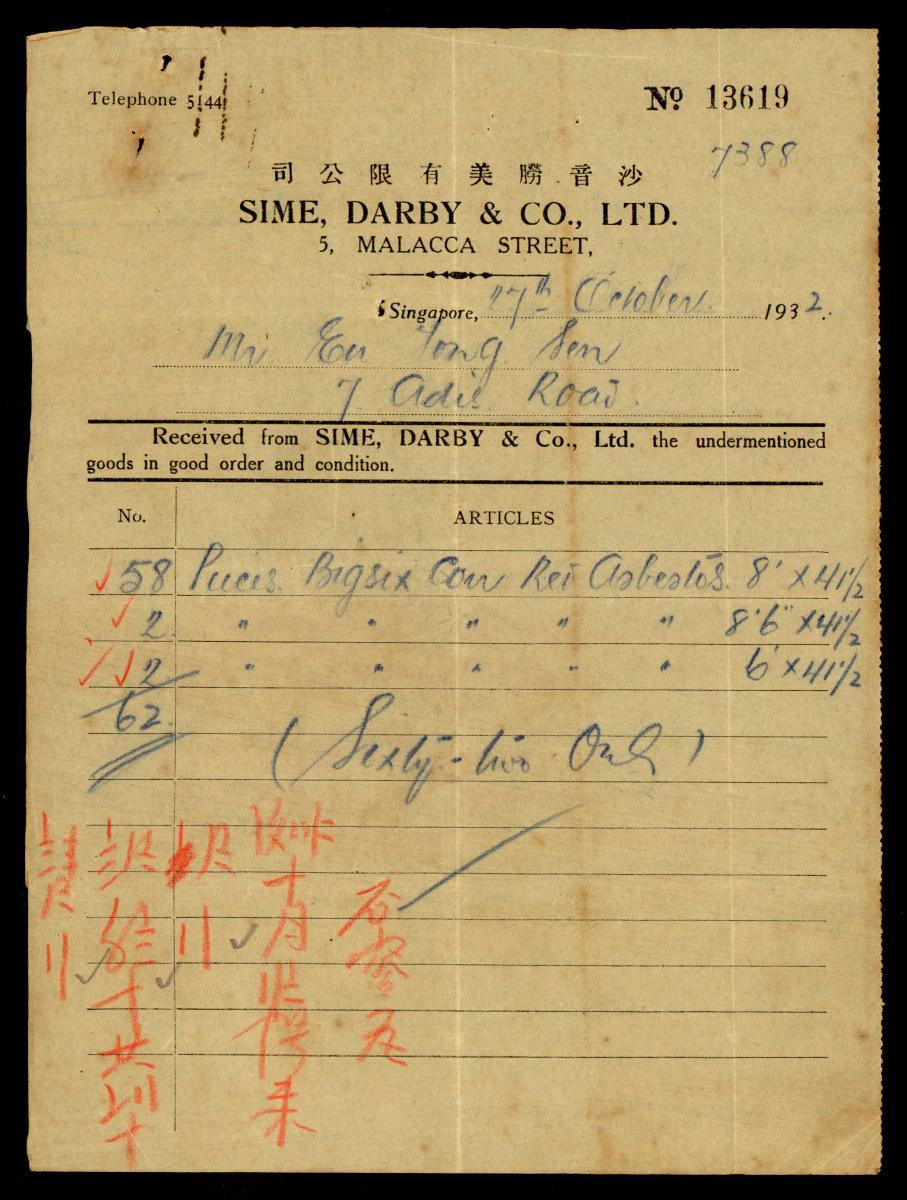 Telephone 5144
Nº 13619
7388
司公限有美勝音沙
SIME, DARBY & CO., LTD.
5, MALACCA STREET,
Singapore, 27th October 1932.
Mr Eu Tong Sen
7 Adis Road.
Received from SIME, DARBY & Co., Ltd. the undermentioned
goods in good order and condition.
No. ARTICLES
58 Pieces Bigsix Corr Rei Asbestos. 8' x 41½
2 " " " " " 8'6" x 41½
2 " " " " " 6' x 41½
62
(Sixty-two Only)
十月
来